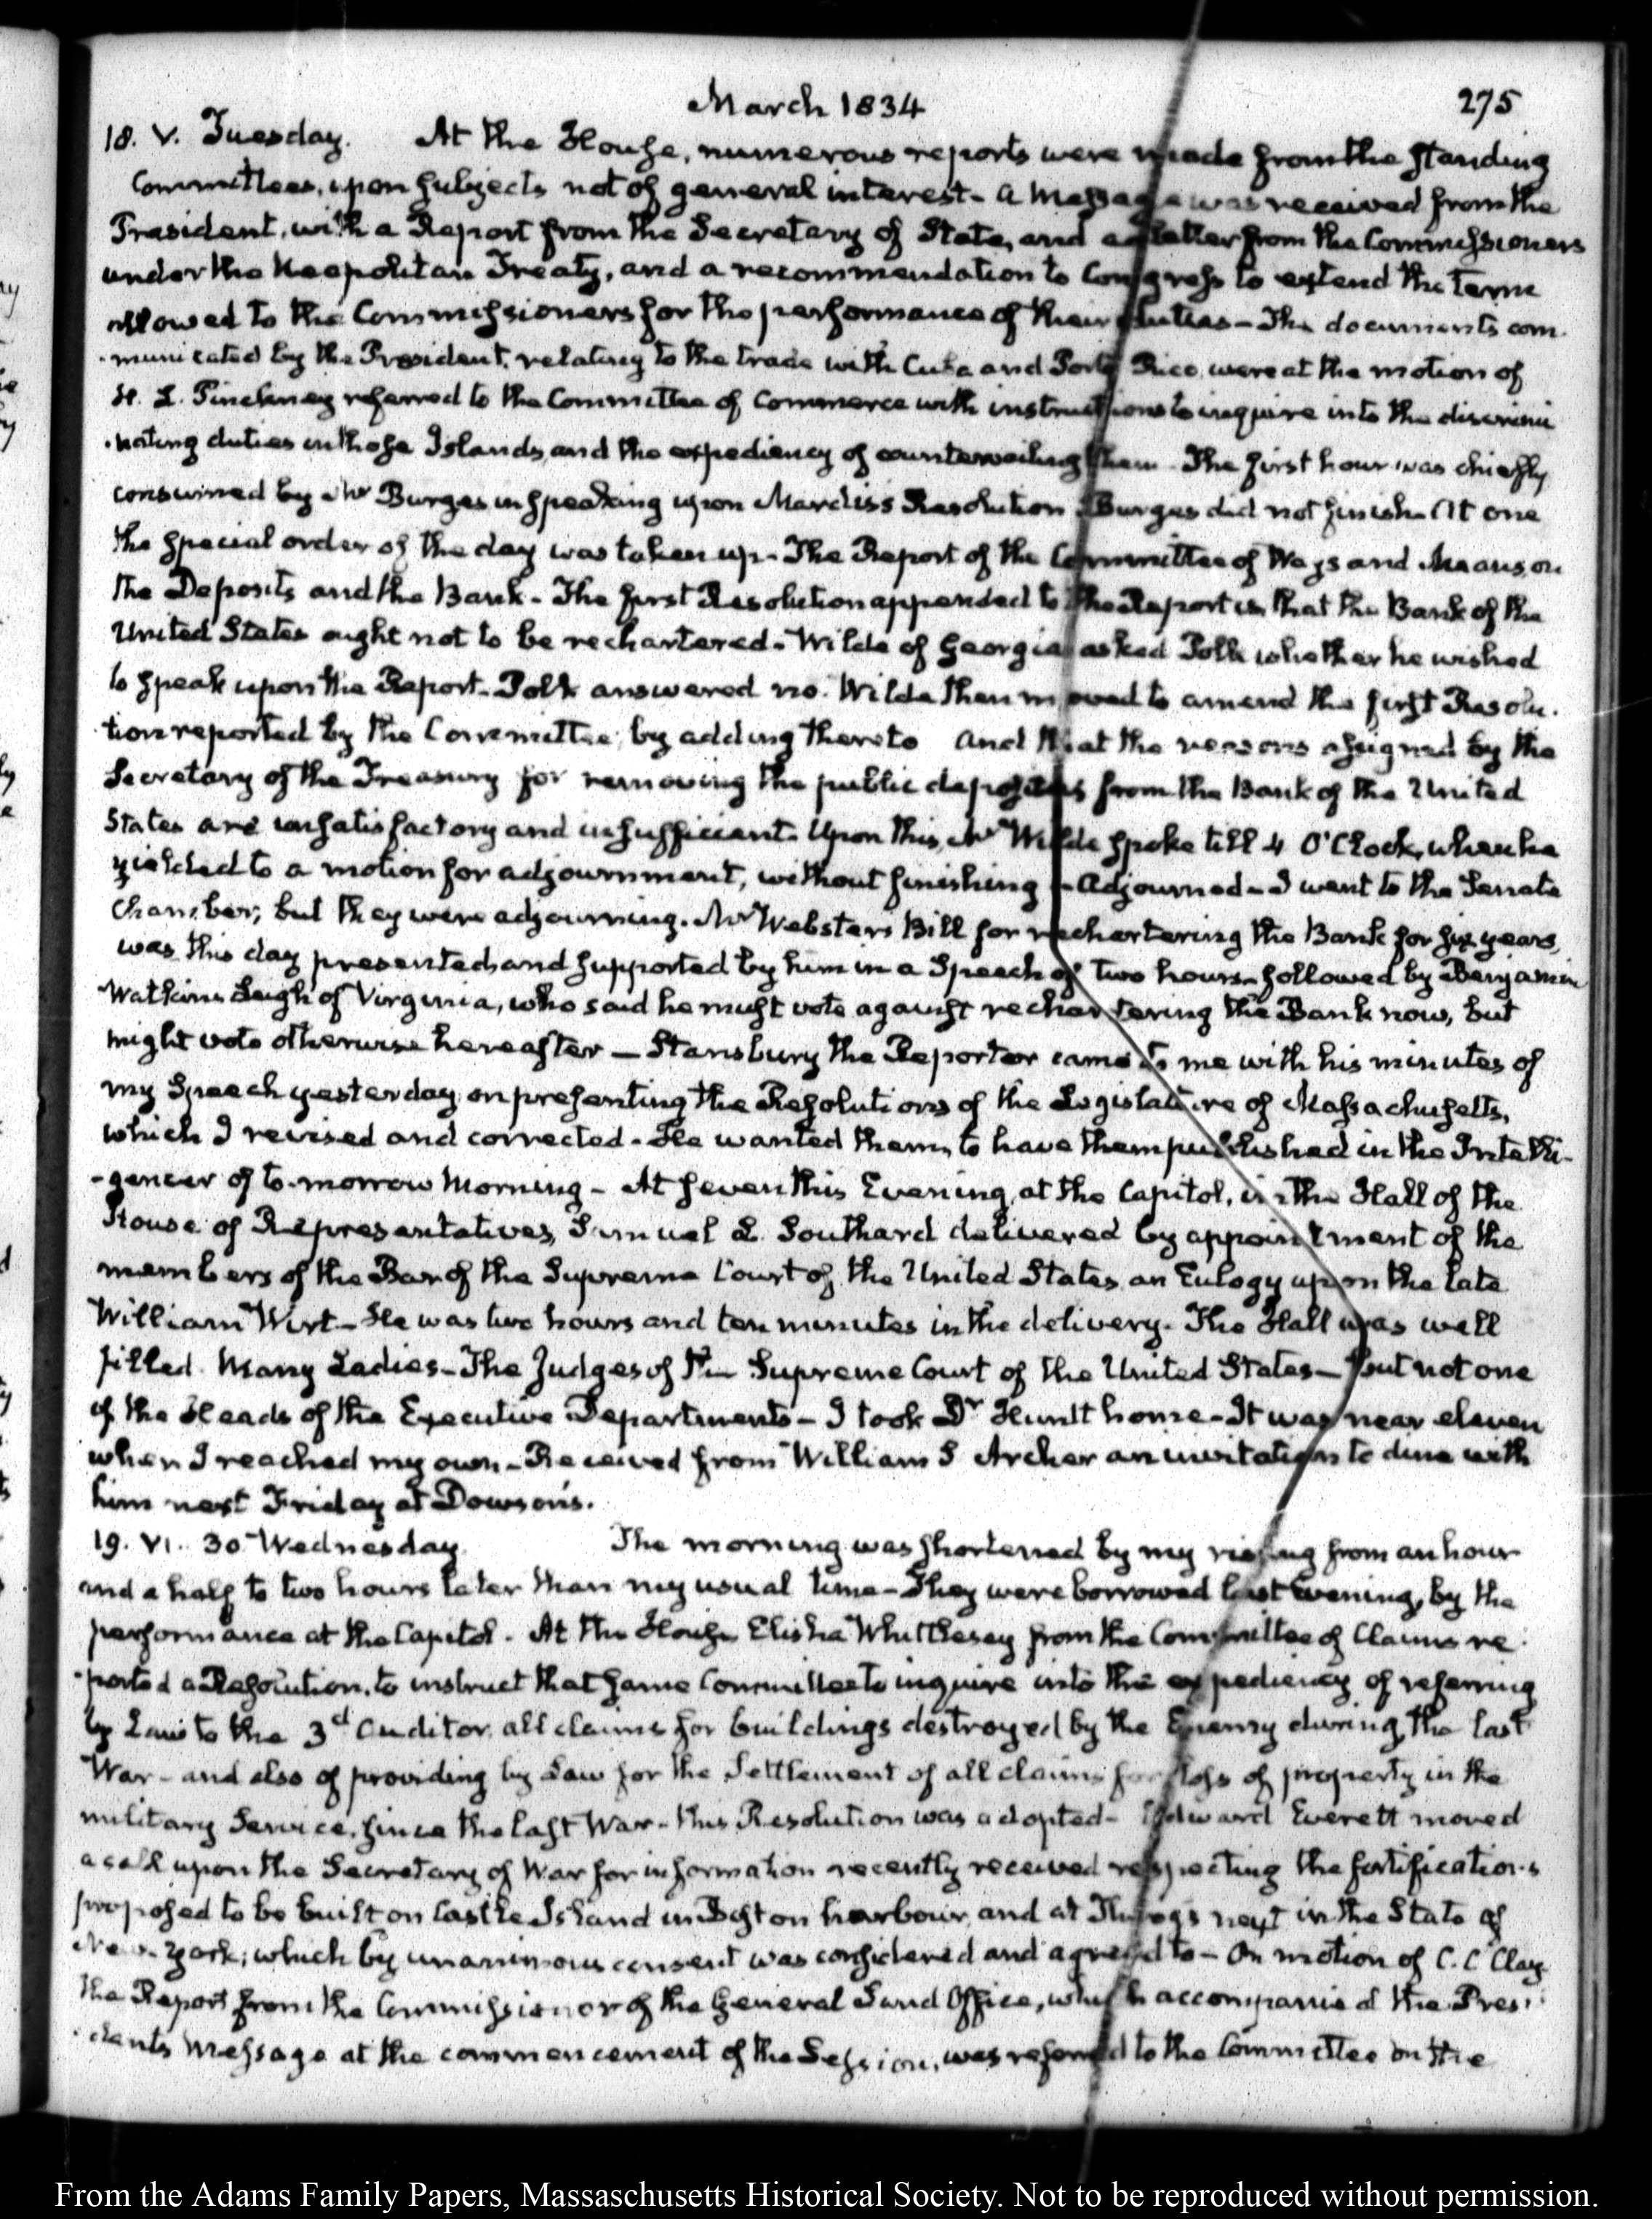 March 1834
275
18. V. Tuesday. At the House, numerous reports were made from the standing
Committees, upon subjects not of general interest - a Message was received from the
President, with a Report from the Secretary of State, and a letter from the Commissioners
under the Neapolitan Treaty, and a recommendation to Congress to extend the term
allowed to the Commissioners for the performance of their duties - The documents com-
-municated by the President, relating to the trade with Cuba and Porto Rico were at the motion of
H. L. Pinckney referred to the Committee of Commerce with instructions to inquire into the discrimi
-nating duties in those Islands, and the expediency of countervailing them - The first hour was chiefly
consumed by Mr Burges in speaking upon Mardis's Resolution - Burges did not finish - At one
the special order of the day was taken up - The Report of the Committee of Ways and Means on
the Deposits and the Bank - The first Resolution appended to the Report is that the Bank of the
United States ought not to be rechartered - Wilde of Georgia asked Polk whether he wished
to speak upon the Report - Polk answered no. Wilde then moved to amend the first Resolu-
tion reported by the Committee, by adding thereto And that the reasons assigned by the
Secretary of the Treasury for removing the public deposites from the Bank of the United
States are unsatisfactory and insufficient. Upon this, Mr Wilde spoke till 4 O'Clock, when he
yielded to a motion for adjournment, without finishing - Adjourned - I went to the Senate
Chamber, but they were adjourning. Mr Websters Bill for rechartering the Bank for six years,
was this day presented and supported by him in a Speech of two hours - followed by Benjamin
Watkins Leigh of Virginia, who said he must vote against rechartering the Bank now, but
might vote otherwise hereafter - Stansbury the Reporter came to me with his minutes of
my Speech yesterday on presenting the Resolutions of the Legislature of Massachusetts,
which I revised and corrected - He wanted them, to have them published in the Intelli-
-gencer of to-morrow Morning - At seven this Evening, at the Capitol, in the Hall of the
House of Representatives, Samuel L. Southard delivered by appointment of the
members of the Bar of the Supreme Court of the United States, an Eulogy upon the late
William Wirt - He was two hours and ten minutes in the delivery. The Hall was well
filled. Many Ladies - The Judges of the Supreme Court of the United States - but not one
of the Heads of the Executive Departments - I took Dr Huntt home - It was near eleven
when I reached my own - Received from William S Archer an invitation to dine with
him next Friday at Dowson's.
19. VI. 30 Wednesday. The morning was shortened by my rising from an hour
and a half to two hours later than my usual time - They were borrowed last Evening, by the
performance at the Capitol. At the House Elisha Whittlesey from the Committee of Claims re-
-ported a Resolution, to instruct that same Committee to inquire into the expediency of referring
by Law to the 3d Auditor, all claims for buildings destroyed by the Enemy during the last
War - and also of providing by Law for the Settlement of all claims for loss of property in the
military Service, since the last War - this Resolution was adopted - Edward Everett moved
a call upon the Secretary of War for information recently received respecting the fortifications
proposed to be built on Castle Island in Boston harbour, and at Throgs neck in the State of
New-York; which by unanimous consent was considered and agreed to - On motion of C. C Clay
the Report from the Commissioner of the General Land Office, which accompanied the Presi-
-dents Message at the commencement of the Session, was referred to the Committee on the
From the Adams Family Papers, Massaschusetts Historical Society. Not to be reproduced without permission.